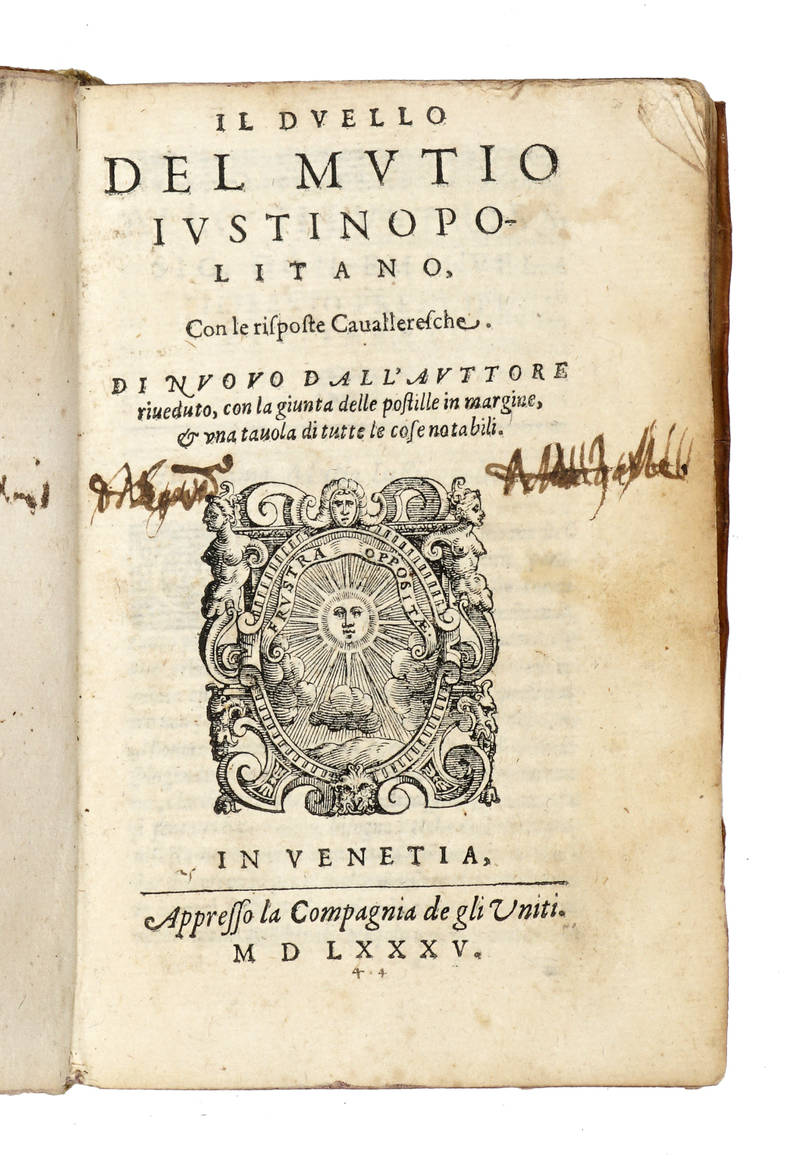 IL DVELLO
DEL MVTIO
IVSTINOPO-
LITANO,
Con le riſpoſte Cauallereſche.
DI NVOVO DALL'AVTTORE
riueduto, con la giunta delle poſtille in margine,
& vna tauola di tutte le coſe notabili.
FRVSTRA OPPOSITÆ.
IN VENETIA,
Appreſſo la Compagnia de gli Vniti.
M D LXXXV.